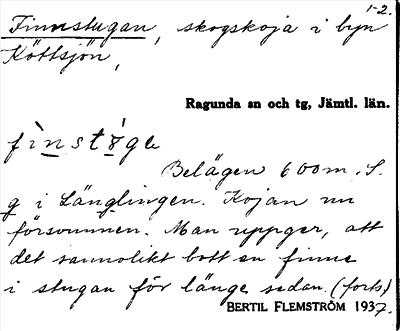 1-2.
Finnstugan, skogskoja i byn
Köttsjön,
Ragunda sn och tg, Jämtl. län.
fìnstⱥgɐ
Belägen 600m. S.
g i Länglingen. Kojan nu
försvunnen. Man uppger, att
det sannolikt bott en finne
i stugan för länge sedan. (forts)
BERTIL FLEMSTRÖM 1937.